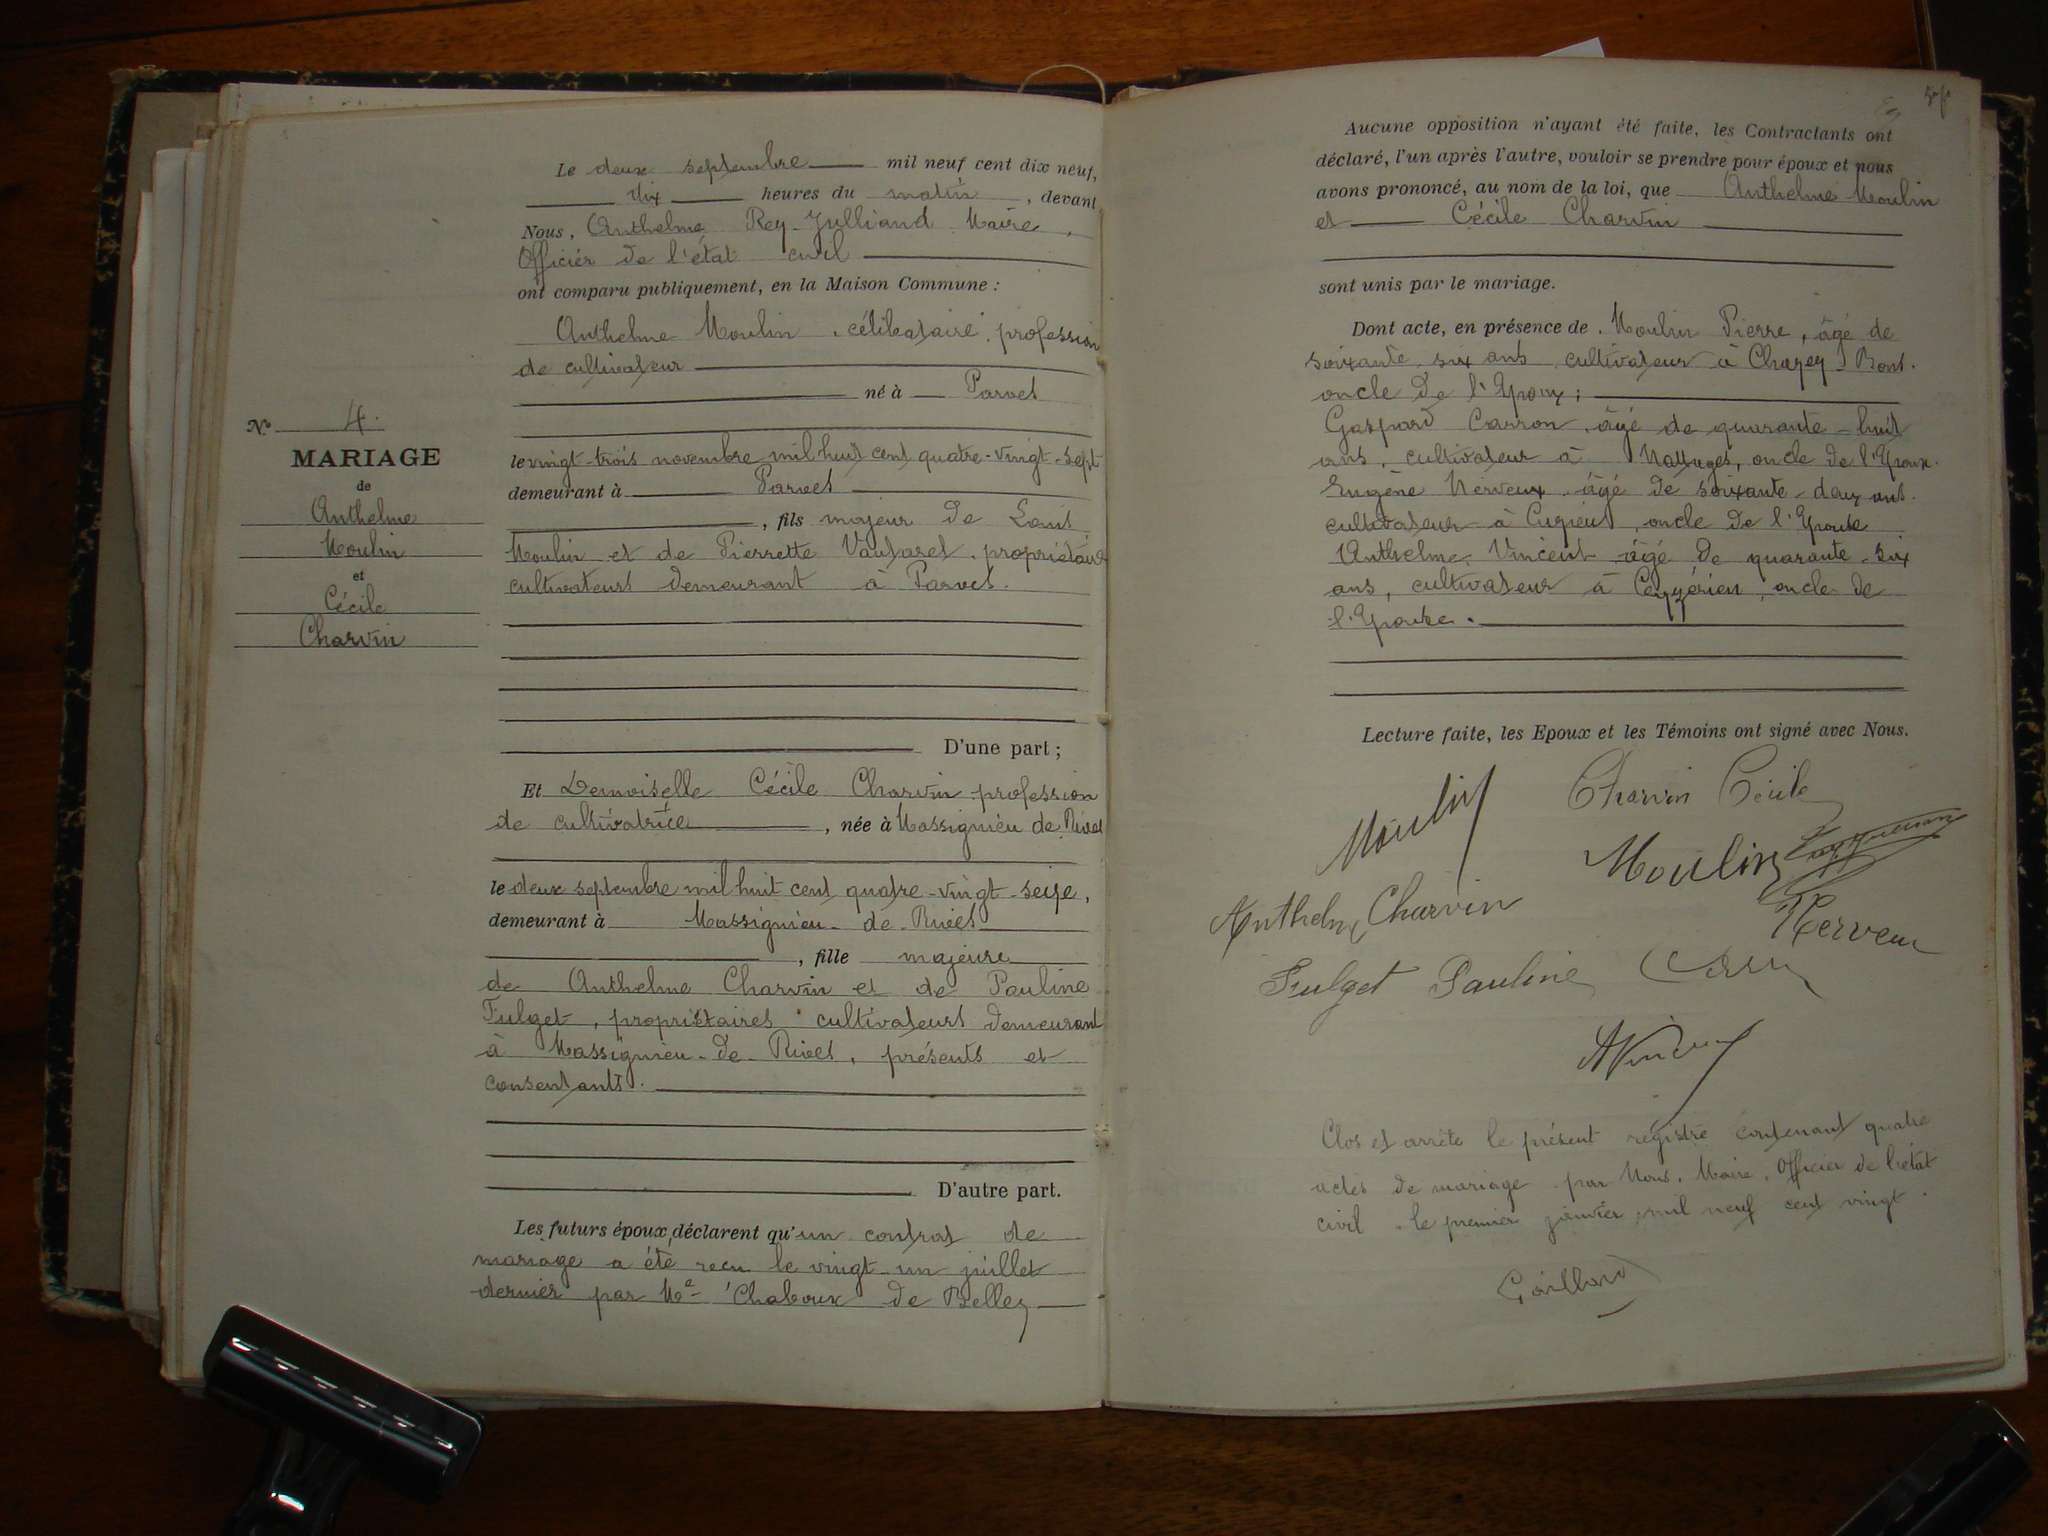 Le deux septembre mil neuf cent dix neuf,
dix heures du matin, devant
Nous, Anthelme Rey-Julliand Maire,
Officier de l'état civil
ont comparu publiquement, en la Maison Commune :
Anthelme Moulin, célibataire, profession
de cultivateur
né à Parves
le vingt-trois novembre mil huit cent quatre-vingt-sept
demeurant à Parves
, fils majeur de Louis
Moulin et de Pierrette propriétaires
cultivateurs demeurant à Parves.
D'une part ;
Nº 4.
MARIAGE
de
Anthelme
Moulin
et
Cécile
Charvin
Et Demoiselle Cécile Charvin profession
de cultivatrice, née à Massignieu de Rives
le deux septembre mil huit cent quatre-vingt-seize,
demeurant à Massignieu-de-Rives
, fille majeure
de Anthelme Charvin et de Pauline
Fulget, propriétaires cultivateurs demeurant
à Massignieu-de-Rives, présents et
consentants.
D'autre part.
Les futurs époux déclarent qu'un contrat de
mariage a été reçu le vingt-un juillet
dernier par Me Chaboux de Belley
Aucune opposition n'ayant été faite, les Contractants ont
déclaré, l'un après l'autre, vouloir se prendre pour époux et nous
avons prononcé, au nom de la loi, que Anthelme Moulin
et Cécile Charvin
sont unis par le mariage.
Dont acte, en présence de Moulin Pierre, âgé de
soixante-six ans cultivateur à Chazey-Bons.
oncle de l'Epoux ;
Gaspard Carron, âgé de quarante-huit
ans, cultivateur à Nattages, oncle de l'Epoux.
Eugène Nerveux, âgé de soixante-deux ans.
cultivateur à Cuzieu, oncle de l'Epouse
Anthelme Vincent âgé de quarante-six
ans, cultivateur à Ceyzérieu, oncle de
l'Epouse.
Lecture faite, les Epoux et les Témoins ont signé avec Nous.
Moulin Charvin Cécile
Moulin
Anthelm Charvin
Nerveux
Fulget Pauline
AVincent
Clos et arrêté le présent registre contenant quatre
actes de mariage par Nous, Maire, Officier de l'état
civil le premier janvier mil neuf cent vingt.
Gaillard